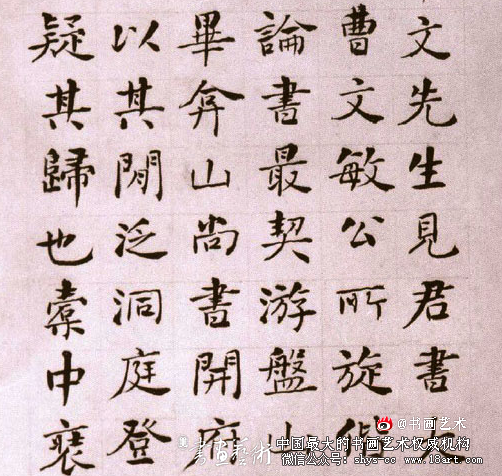 文先生見君書
曹文敏公所旋偕
論書最契游盤
畢弇山尚書開府
以其閒泛洞庭登
疑其歸也橐中裒
@书画艺术
書畫藝術
中国最大的书画艺术权威机构
微信公众号：shys-cc www.18art.com